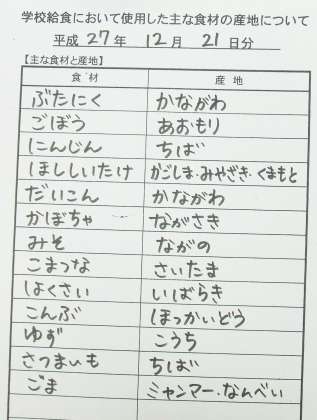 学校給食において使用した主な食材の産地について
平成 27 年 12 月 21 日分
【主な食材と産地】
食材 産地
ぶたにく かながわ
ごぼう あおもり
にんじん ちば
ほししいたけ かごしま・みやざき・くまもと
だいこん かながわ
かぼちゃ ながさき
みそ ながの
こまつな さいたま
しょくさい いばらき
こんぶ ほっかいどう
ゆず こうち
さつまいも ちば
ごま ミャンマー・なんべい